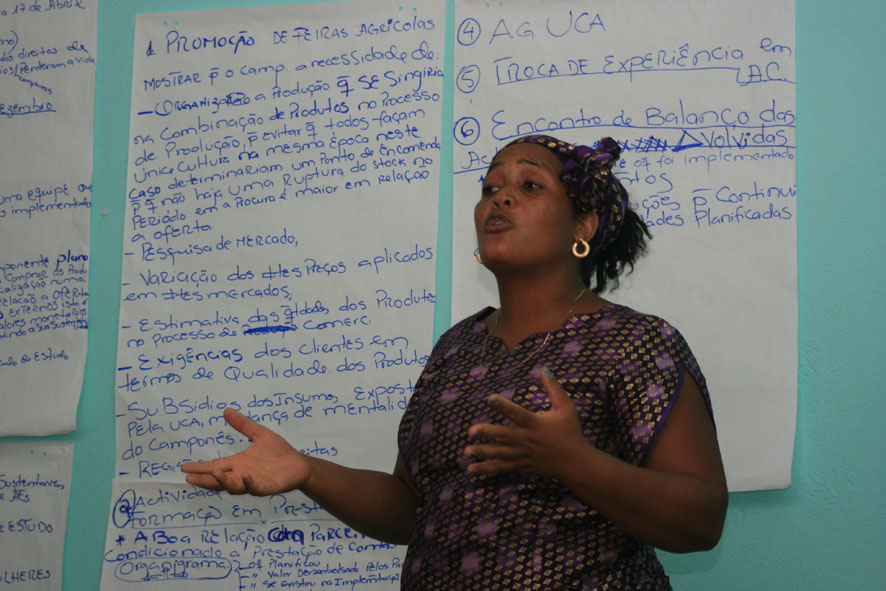 a 17 de Abril
direitos de
Perderam a vida
ezembro
uma equipe
s implementado
ponente plano
a comprar os Produ
relação a oferta
EXTERNOS isto é
alores monetários
ulo de Estudo
Sustentaveis
e AEs
E ESTUDO
ULHERES
1 PROMOÇÃO DE FEIRAS AGRICOLAS
MOSTRAR p̄ o camp. a necessidade de:
- ORGANIZAR a PRODUÇÃO q̄ SE SINGIRIA
na Combinação de PRODUTOS no PROCESSO
de PRODUÇÃO, p̄ EVITAR q̄ todos façam
única Cultura na mesma Época neste
caso determinariam um Ponto de Encomenda
p̄ q̄ não haja uma RUPTURA do STOCK no
PERIODO em a PROCURA é MAIOR em RELAÇÃO
a OFERTA.
- PESQUISA DE MERCADO;
- VARIAÇÃO dos ≠tes PREÇOS aplicados
em ≠tes mercados;
- Estimativa das q̄tdades dos Produtos
no PROCESSO de Comerc.
- EXIGÊNCIAS dos Clientes em
termos de Qualidade dos Produtos
- SUBSÍDIOS dos INSUMOS, EXPOST
PELA UCA, MUDANÇA DE MENTALID
do Camponês.
- REGIS
itas
2 Actividad
FORMAÇÃO EM PREST
* A BOA RELAÇÃO PARCEI
condicionado a Prestação de Contas
Organigrama
o q̄ Planificou
" Valor Desembolsado Pelos Pa
" Se Gastou na Implemētação
4 AG UCA
5 TROCA DE EXPERIÊNCIA em
AC.
6 Encontro de Balanço das
Act
Δvolvidas
e q̄ foi implementado
ntos
ções p̄ Continui
dades Planificadas